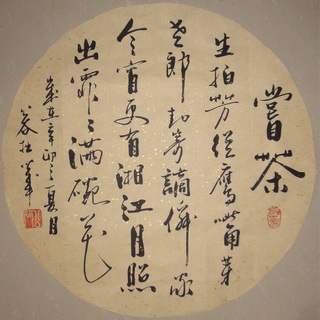 嘗茶
生拍芳從鷹嘴芽
老郎封寄謫僊家
今宵更有湘江月照
出霏〻滿碗花
歲在辛卯之夏月